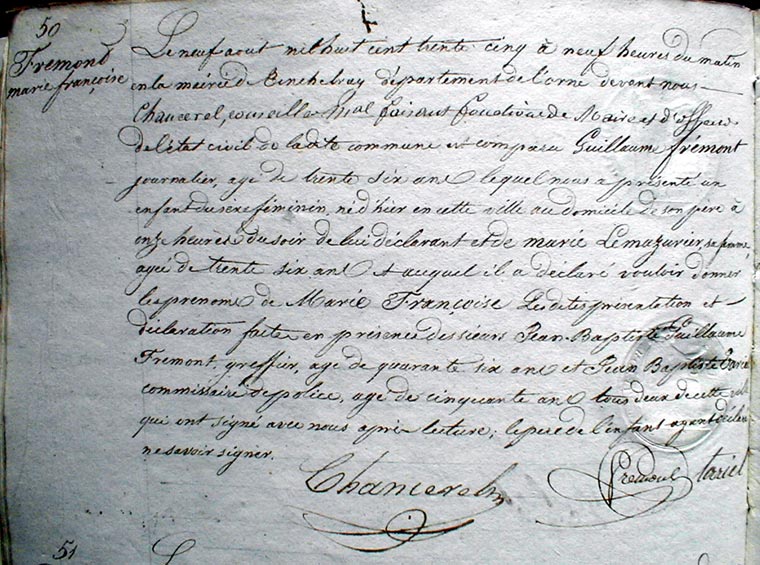 50
Fremont
marie françoise
Le neuf aout mil huit cent trente cinq à neuf heures du matin
en la mairie de Tinchebray département de l'orne devant nous
Chancerel, conseiller mal faisant fonctions de Maire et d'officier
de l'état civil de la dite commune est comparu Guillaume frémont
journalier, age de trente six ans lequel nous a présenté un
enfant du sexe féminin, né d'hier en cette ville au domicile de son père à
onze heures du soir de lui déclarant et de marie Lemazurier, sa femme,
agée de trente six ans et auquel il a déclaré vouloir donner
les prenoms de Marie Françoise Les dites présentation et
déclaration faites en présence des sieurs Jean Baptiste Guillaume
Fremont, greffier, age de quarante six ans et Jean Baptiste Tariel
commissaire de police, age de cinquante ans tous deux de cette ville
qui ont signé avec nous après lecture; le père de l'enfant ayant déclaré
ne savoir signer.
Chancerel
Fremont
tariel
51